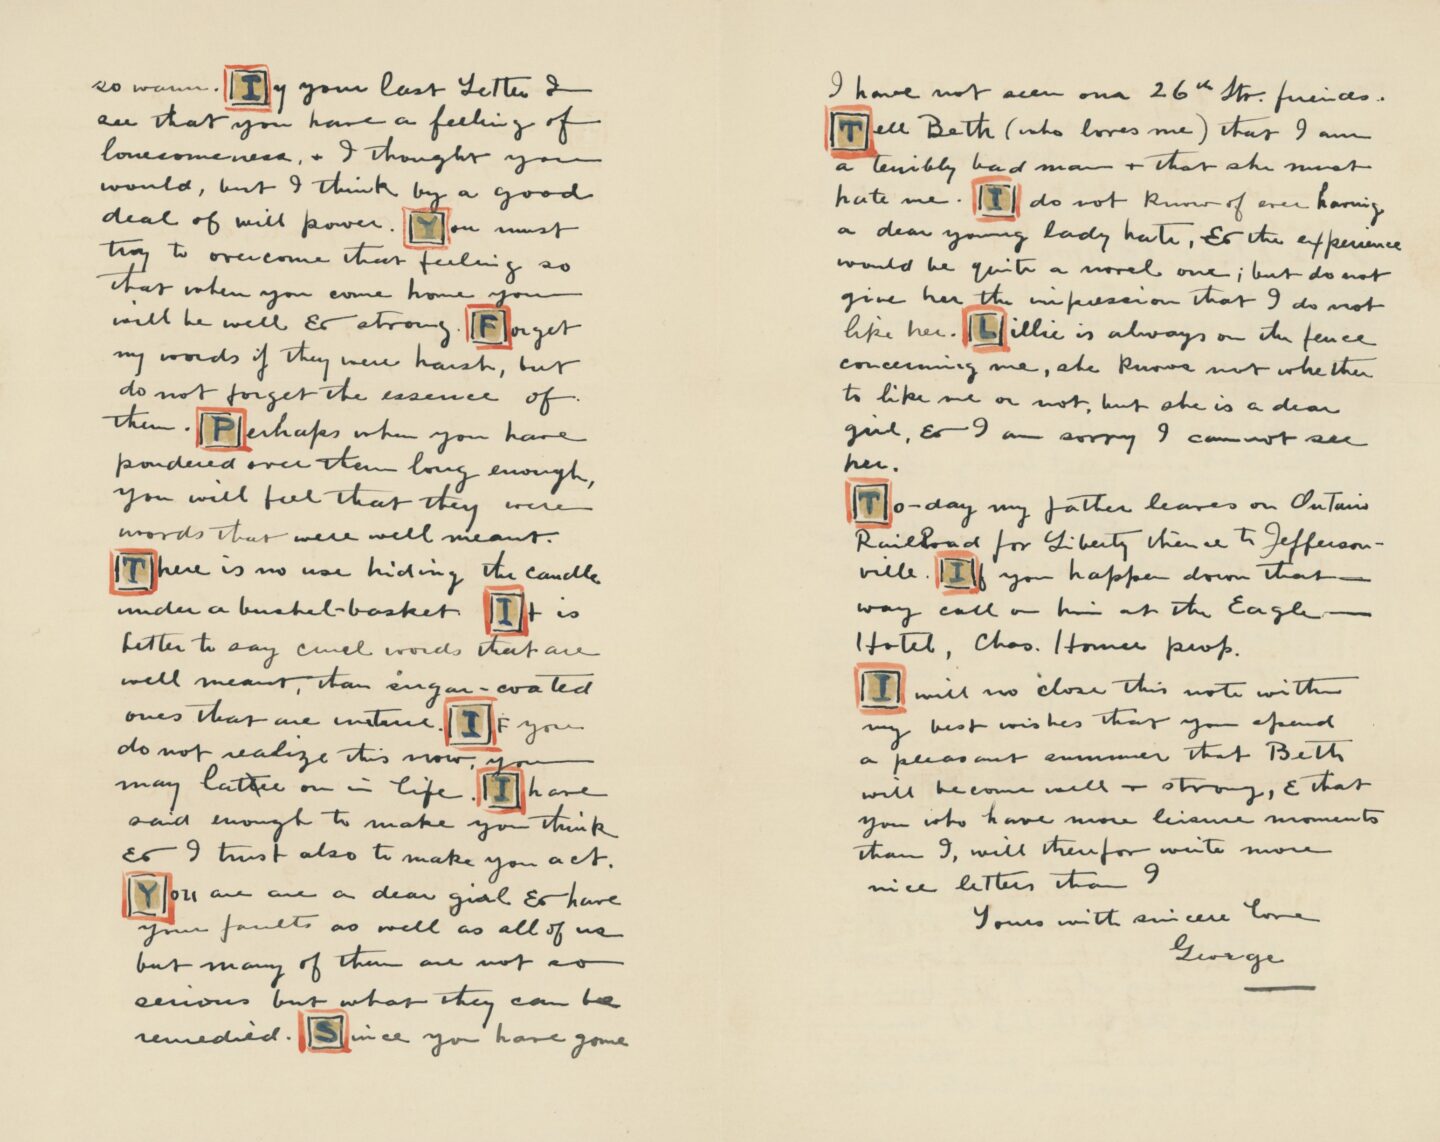 so warm. Iy your last Letter I
see that you have a feeling of
lonesomeness, + I thought you
would, but I think by a good
deal of will power. You must
try to overcome that feeling so
that when you come home you
will be well & strong. Forget
my words if they were harsh, but
do not forget the essence of
them. Perhaps when you have
pondered over them long enough,
you will feel that they were
words that were well meant.
There is no use hiding the candle
under a bushel-basket. It is
better to say cruel words that are
well meant, than sugar-coated
ones that are untrue. If you
do not realize this now, you
may latter on in life. I have
said enough to make you think
& I trust also to make you act.
You are are a dear girl & have
your faults as well as all of us
but many of them are not so
serious but what they can be
remedied. Since you have gone
I have not seen our 26th Str. friends.
Tell Beth (who loves me) that I am
a terribly bad man + that she must
hate me. I do not know of ever having
a dear young lady hate, & the experience
would be quite a novel one; but do not
give her the impression that I do not
like her. Lillie is always on the fence
concerning me, she knows not whether
to like me or not, but she is a dear
girl, & I am sorry I cannot see
her.
To-day my father leaves on Ontario
RailRoad for Liberty thence to Jefferson-
ville. If you happen down that
way call on him at the Eagle
Hotel, Chas. Homer prop.
I will no close this note with
my best wishes that you spend
a pleasant summer that Beth
will become well + strong, & that
you who have more leisure moments
than I, will therefor write more
nice letters than I
Yours with sincere love
George